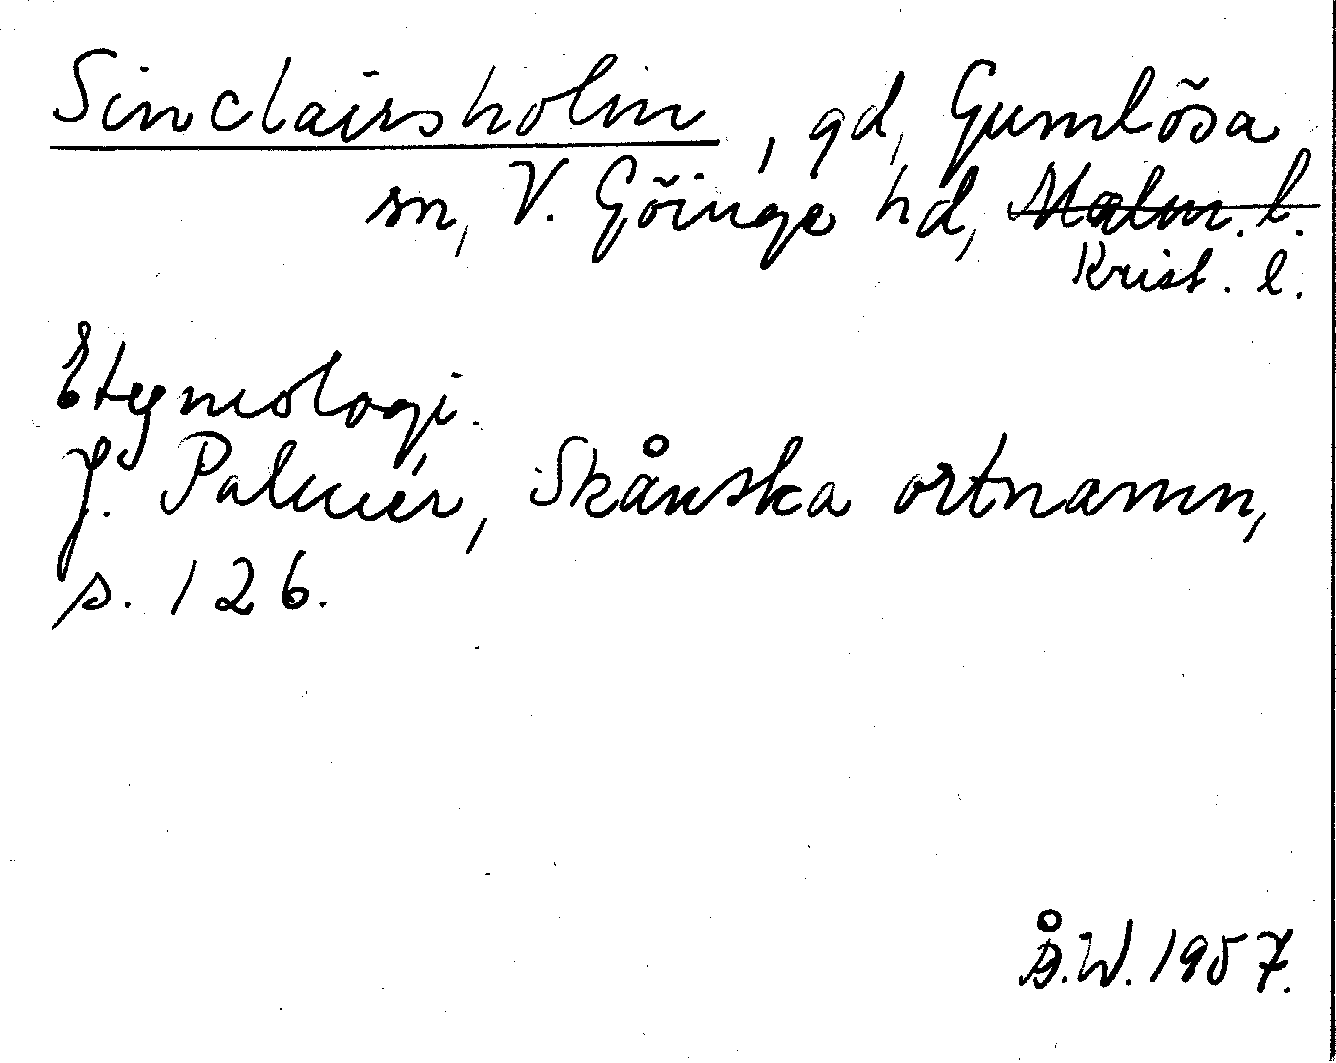 Sinclairsholm, gd, Gumlösa
sn, V. Göinge hd, Malm. l.
Krist. l.
Etymologi.
J. Palmér, Skånska ortnamn,
s. 126.
Å.W. 1957.